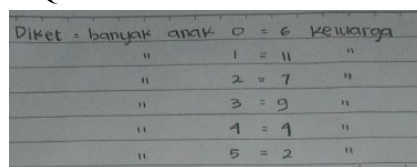 Diket = banyak anak 0 = 6 keluarga
" 1 = 11 "
" 2 = 7 "
" 3 = 9 "
" 4 = 4 "
" 5 = 2 "